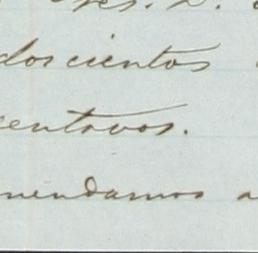 doscientos
centavos.
mendamos a